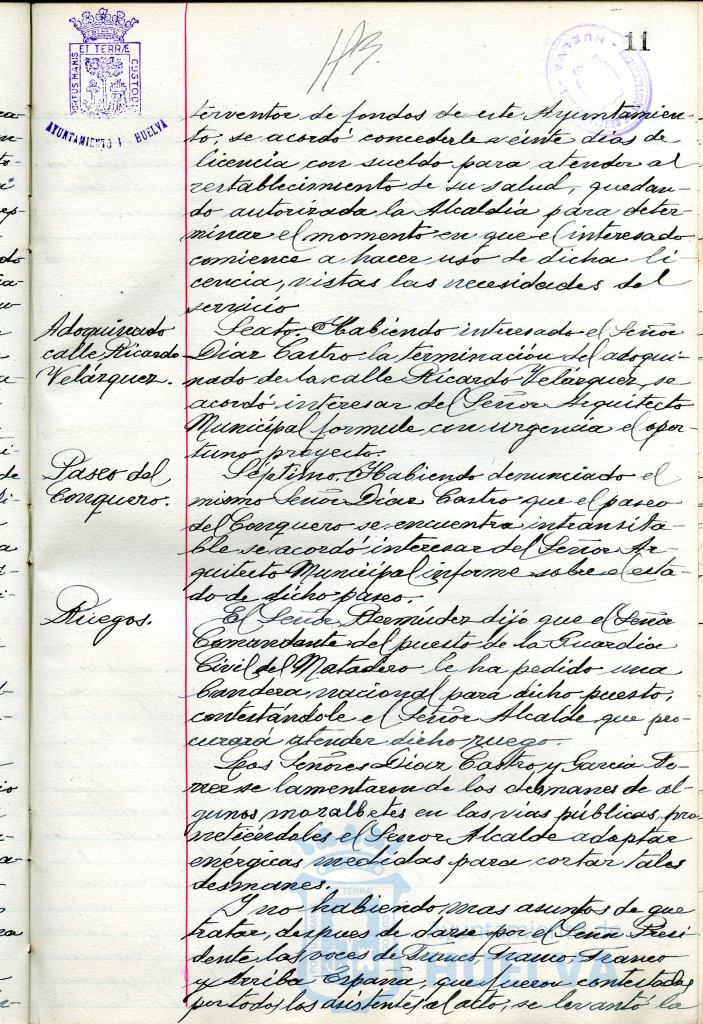 11
PORTUS MARIS ET TERRÆ CUSTODIA
AYUNTAMIENTO HUELVA
HUELVA
terventor de fondos de este Ayuntamien-
to; se acordó concederle veinte días de
licencia con sueldo para atender al
restablecimiento de su salud, quedan-
do autorizada la Alcaldía para deter-
minar el momento en que el interesado
comience a hacer uso de dicha li
cencia, vistas las necesidades del
servicio
Adoquinado
calle Ricardo
Velázquez.
Sexto. Habiendo interesado el Señor
Díaz Castro la terminación del adoqui-
nado de la calle Ricardo Velázquez, se
acordó interesar del Señor Arquitecto
Municipal formule con urgencia el opor-
tuno proyecto.
Paseo del
Conquero.
Séptimo. Habiendo denunciado el
mismo Señor Díaz Castro que el paseo
del Conquero se encuentra intransita-
ble se acordó interesar del Señor Ar-
quitecto Municipal informe sobre el esta-
do de dicho paseo.
Ruegos.
El Señor Bermúdez dijo que el Señor
Comandante del puesto de la Guardia
Civil del Matadero le ha pedido una
bandera nacional para dicho puesto;
contestándole el Señor Alcalde que pro-
curará atender dicho ruego.
Los Señores Díaz Castro y García
se lamentaron de los desmanes de al-
gunos mozalbetes en las vías públicas, pro-
metiéndoles el Señor Alcalde adoptar
enérgicas medidas para cortar tales
desmanes.
Y no habiendo mas asuntos de que
tratar, despues de darse por el Señor Presi-
dente las voces de Franco, Franco, Franco
y Arriba España, que fueron contestadas
por todos los asistentes al acto, se levantó la
TERRÆ
Ayuntamiento de
HUELVA